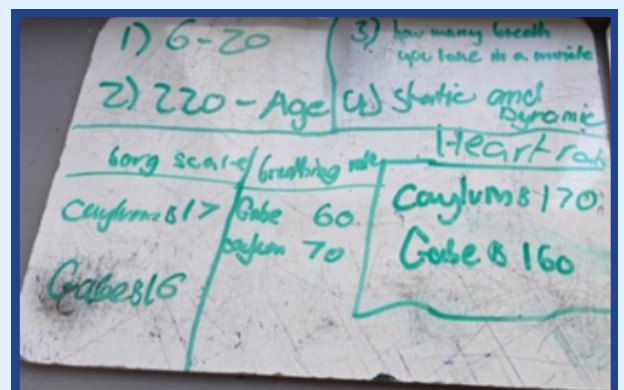 1) 6-20
2) 220 - Age
3) how many breath
you take in a minute
4) Static and
Dynamic
borg scale
Caylums 17
Gabes 16
breathing rate
Gabe 60
Caylum 70
Heart rate
Caylums 170
Gabes 160